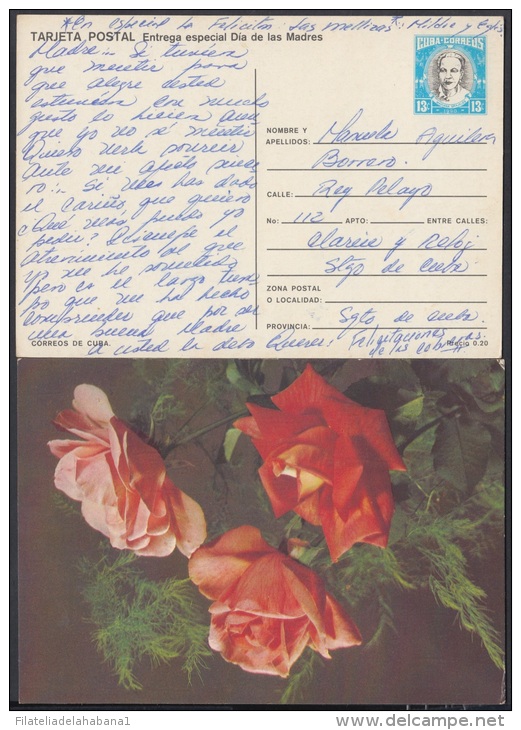 *En especial la Felicitan las mellizas *: Mildia y
TARJETA POSTAL Entrega especial Día de las Madres
CUBA·CORREOS
13c 13c
Madre... Si tuviera
que mentir para
que alegre usted
estuviera con mucho
gusto lo hiciera aun
que yo no sé mentir
Quiero verla
ante mi
ro:- Si Ud me has dado
el cariño que quiero
¿Qué más puedo yo
pedir? Disculpe el
atrevimiento al que
yo me he sometido
pero es el largo tiem
po que me ha hecho
comprender que por ser
una buena Madre
a usted la debo Querer:
NOMBRE Y
APELLIDOS: Manuela Aguilera
Borrero.
CALLE: Rey Pelayo
No: 112 APTO: ENTRE CALLES:
y
Stgo de Cuba
ZONA POSTAL
O LOCALIDAD:
PROVINCIA: Sgto de Cuba
Felicitaciones
de las
CORREOS DE CUBA.
Precio 0.20
© Filateliadelahabana1